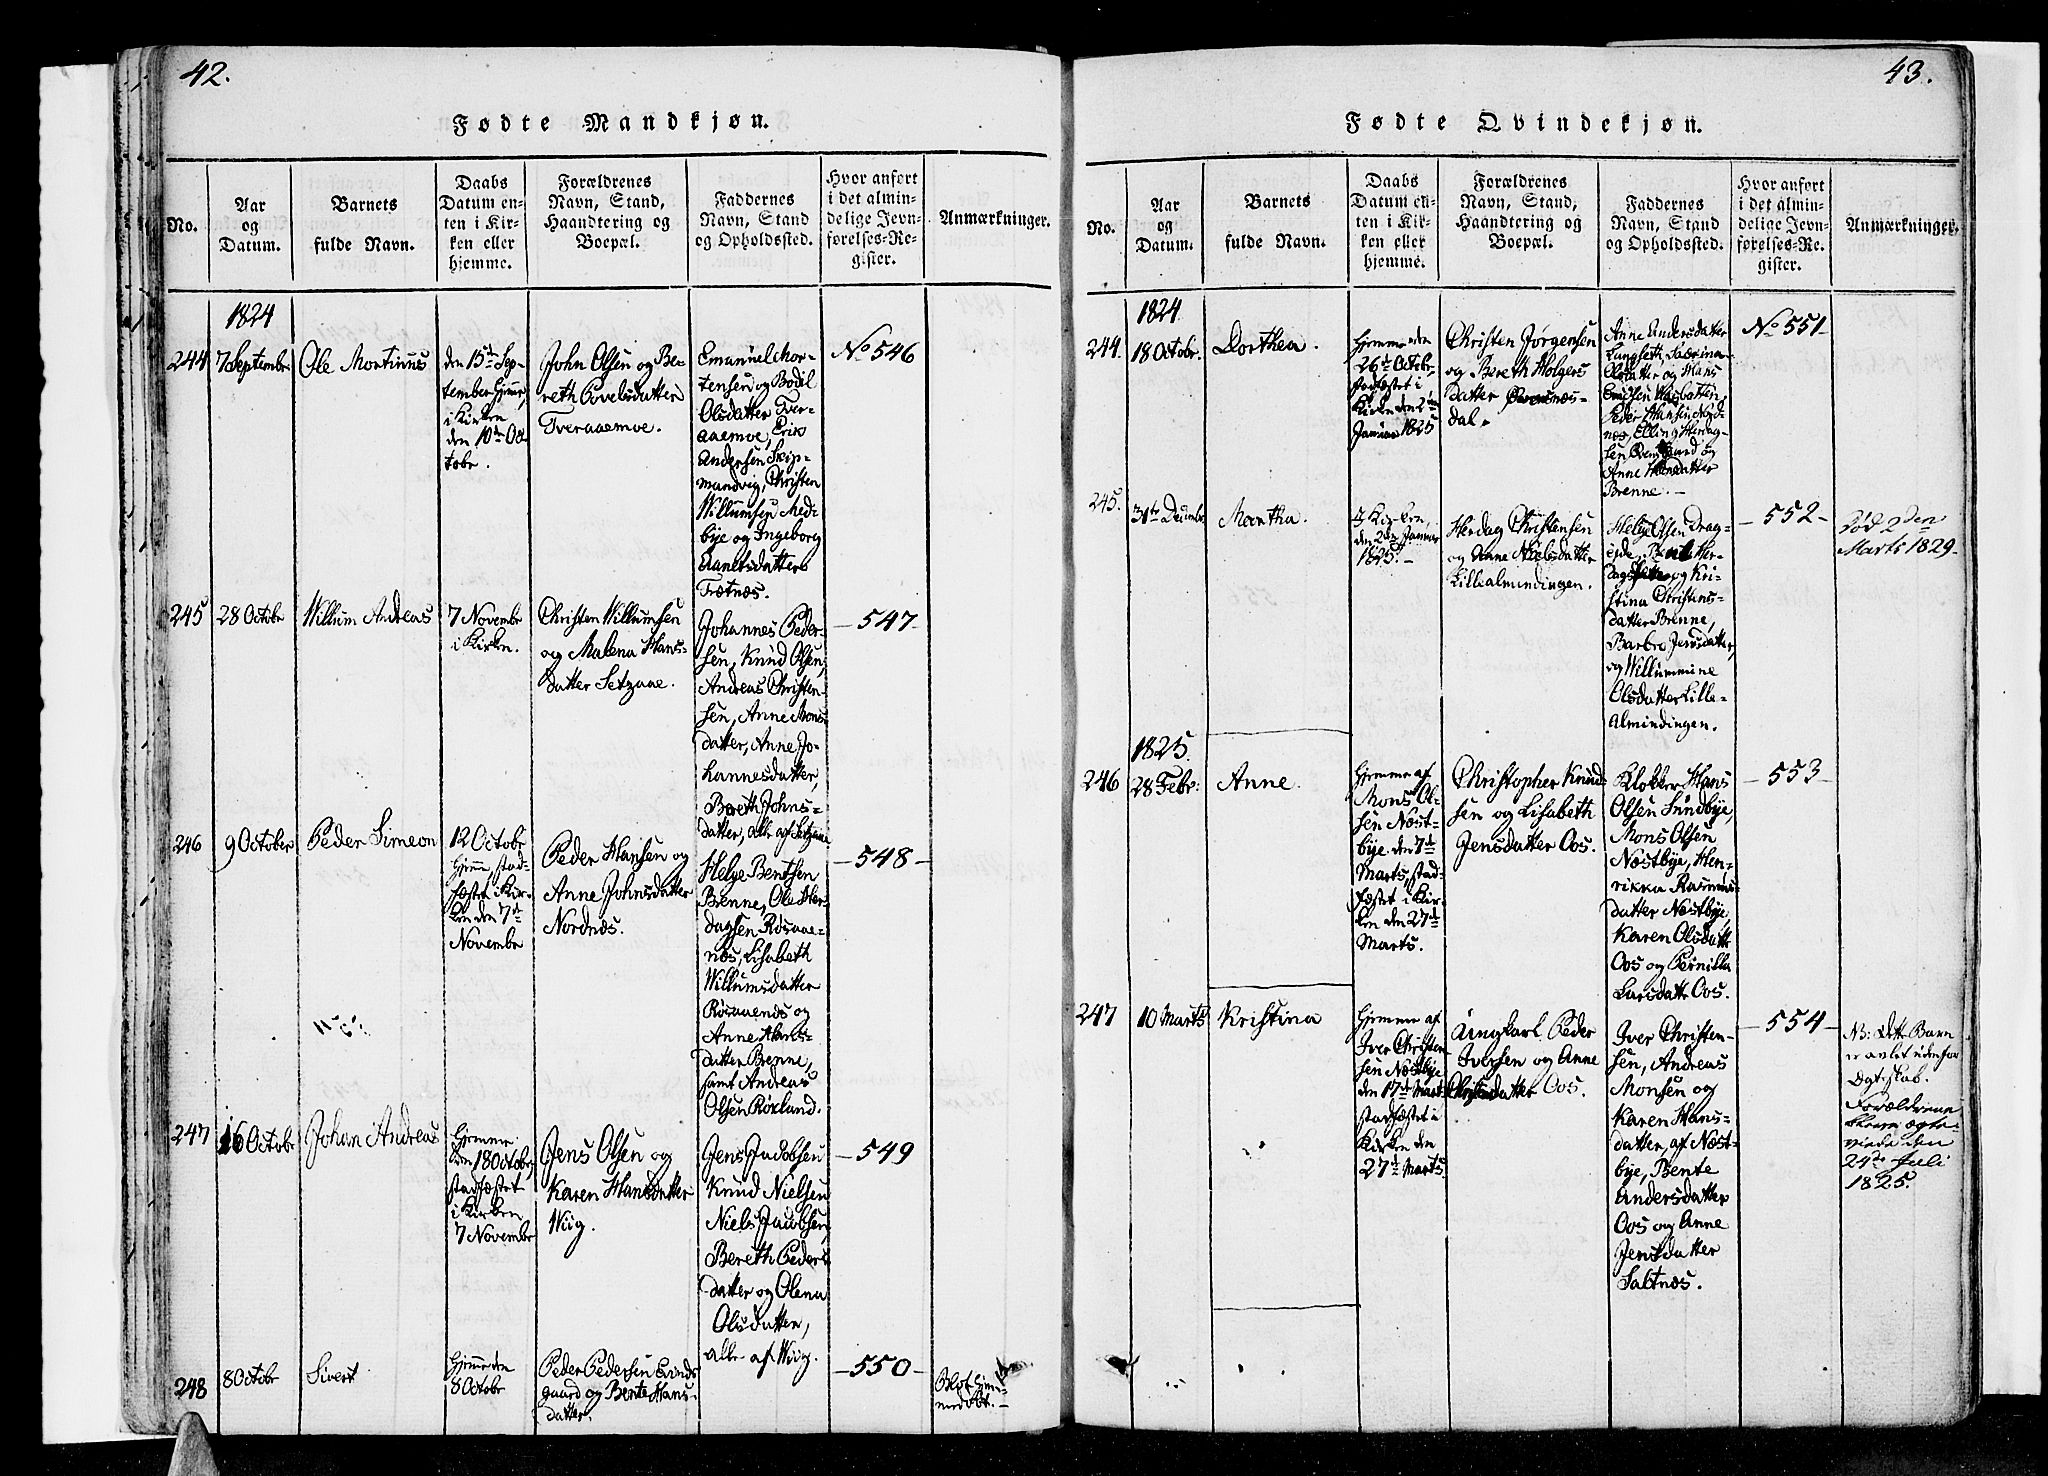 42.
Fødte Mandkjøn.
No.
Aar
og
Datum.
Barnets
fulde Navn.
Daabs
Datum en-
ten i Kir-
ken eller
hjemme.
Forældrenes
Navn, Stand,
Haandtering og
Boepæl.
Faddernes
Navn, Stand
og Opholdssted.
Hvor anført
i det almin-
delige Jevn-
førelses-Re-
gister.
Anmærkninger.
1824
244
7 Septembr
Ole Mortinus
den 15de Sep-
tember hjemme,
i Kirken
den 10de Oc-
tobr.
John Olsen og Be-
reth Povelsdatter
Tveraaemoe.
Emanuel Mor-
tensen og Bodil
Olsdatter Tver-
aaemoe, Erik
Andersen Skip-
mandvig, Christen
Willumsen Medi-
bye og Ingeborg
datter
Tætnæs.
No 546
245
28 Octobr
Willum Andreas
7 Novembr
i Kirken.
Christen Willumsen
og Malena Hans-
datter Setzaae.
Johannes Peder-
sen, Knud Olsen,
Andreas Christen-
sen, Anne Mons-
datter, Anne Jo-
hannesdatter,
Bereth Johns-
datter, alle af Setzaae
-547-
246
9 October
Peder Simeon
12 Octobr
hjemme, stad-
fæstet i Kir-
ken den 7de
Novembr
Peder Hansen og
Anne Johnsdatter
Nordnæs.
Helge Bentsen
Brenne, Ole Her-
dagsen Røsaae-
næs, Lisabeth
Willumsdatter
Røsaaenæs og
Anne Hans-
datter Brenne,
samt Andreas
Olsen Røkland.
-548-
247
16 Octobr
Johan Andreas
Hjemme
den 18 Octobr,
stadfæstet
i Kirken
7 Novembr
Jens Olsen og
Karen Hansdatter
Wiig.
Jens Jacobsen
Knud Nielsen
Niels Jacobsen,
Bereth Peders-
datter og Olena
Olsdatter,
alle af Wiig.
-549
248
8 Octobr
Sivert
Hjemme den
8 Octobr
Peder Pedersen Evinds-
gaard og Bente Hans-
datter.
-550-
Blot hjem-
medøbt.-
43.
Fødte Qvindekjøn.
No.
Aar
og
Datum.
Barnets
fulde Navn.
Daabs
Datum en-
ten i Kir-
ken eller
hjemme.
Forældrenes
Navn, Stand,
Haandtering og
Boepæl.
Faddernes
Navn, Stand
og Opholdssted.
Hvor anført
i det almin-
delige Jevn-
førelses-Re-
gister.
Anmærkninger.
1824
244.
18 Octobr.
Dorthea.
Hjemme den
26de Octobr
stadfæstet i
Kirken den 2den
Januar 1825
Christen Jørgensen
og Bereth Holgers
datter
dal.
Anne Andersdatter
Langseth, Særina
Olsdatter og Hans
Ericksen
Peder Hansen Nord-
næs, Elling Herdag-
sen og
Anne Hansdatter
Brenne.-
No 551-
245.
31te Decembr
Martha.
I Kirken,
den 2den Januar
1825.-
Herdag Christensen
og Anne Nielsdatter
Lillealmindingen.
Helge Olsen Drag-
eide, Bente Her-
dagsdatter og Kri-
stina Christens-
datter Brenne,
Barbro Jensdatter,
og Willummine
Olsdatter Lille-
Almindingen.
-552-
Død 2den
Marts 1829-
1825.
246
28 Febr:
Anne.
Hjemme af
Mons Ol-
sen Næst-
bye den 7de
Marts, stad-
fæstet i Kir-
ken den 27de
Marts.
Christopher Knud-
sen og Lisabeth
Jensdatter Oos.
Klokker Hans
Olsen Sundbye,
Mons Olsen
Næstbye, Hen-
rikka Rasmus-
datter Næstbye
Karen Olsdatter
Oos og Pernilla
Larsdatter Oos.
-553-
247
10 Marts
Kristina
Hjemme af
Iver Christen-
sen Næstbye
den 17de Marts
stadfæstet i
Kirken den
27de Marts.
Ungkarl Peder
Iversen og Anne
Christensdatter Oos.
Iver Christen-
sen, Andreas
Monsen og
Karen Hans-
datter, af Næst-
bye, Bente
Andersdatter
Oos og Anne
Jensdatter
Saltnæs.
-554-
NB: Dette Barn
er avlet udenfor
Ægteskab.
Forældrene
ægte-
viede den
24de Juli
1825.